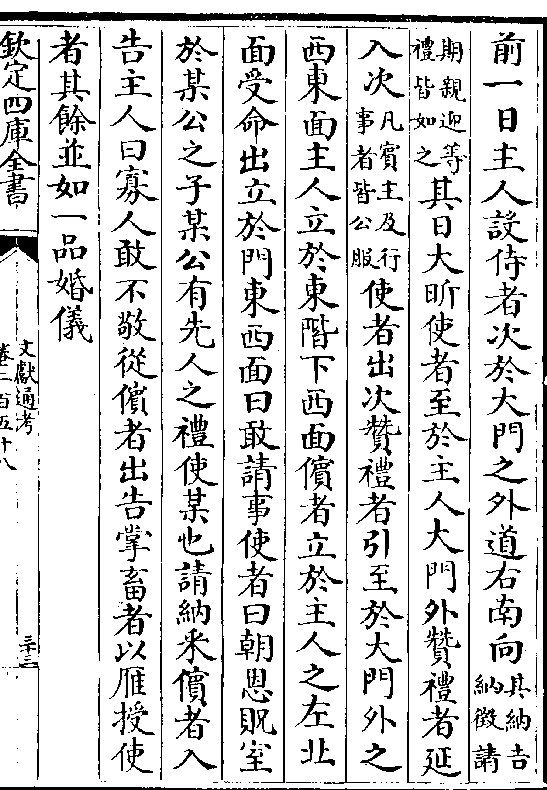 前一日主人設侍者次於大門之外道右南向其納吉納徵請
期親迎等禮皆如之其日大昕使者至於主人大門外贊禮者延
入次凡賓主及行事者皆公服使者出次贊禮者引至於大門外之
西東面主人立於東階下西面儐者立於主人之左北
面受命出立於門東西面曰敢請事使者曰朝恩貺室
於某公之子某公有先人之禮使某也請納采儐者入
告主人曰寡人敢不敬從儐者出告掌畜者以雁授使
者其餘並如一品婚儀
欽定四庫全書
文獻通考
卷二百五十八
三十三